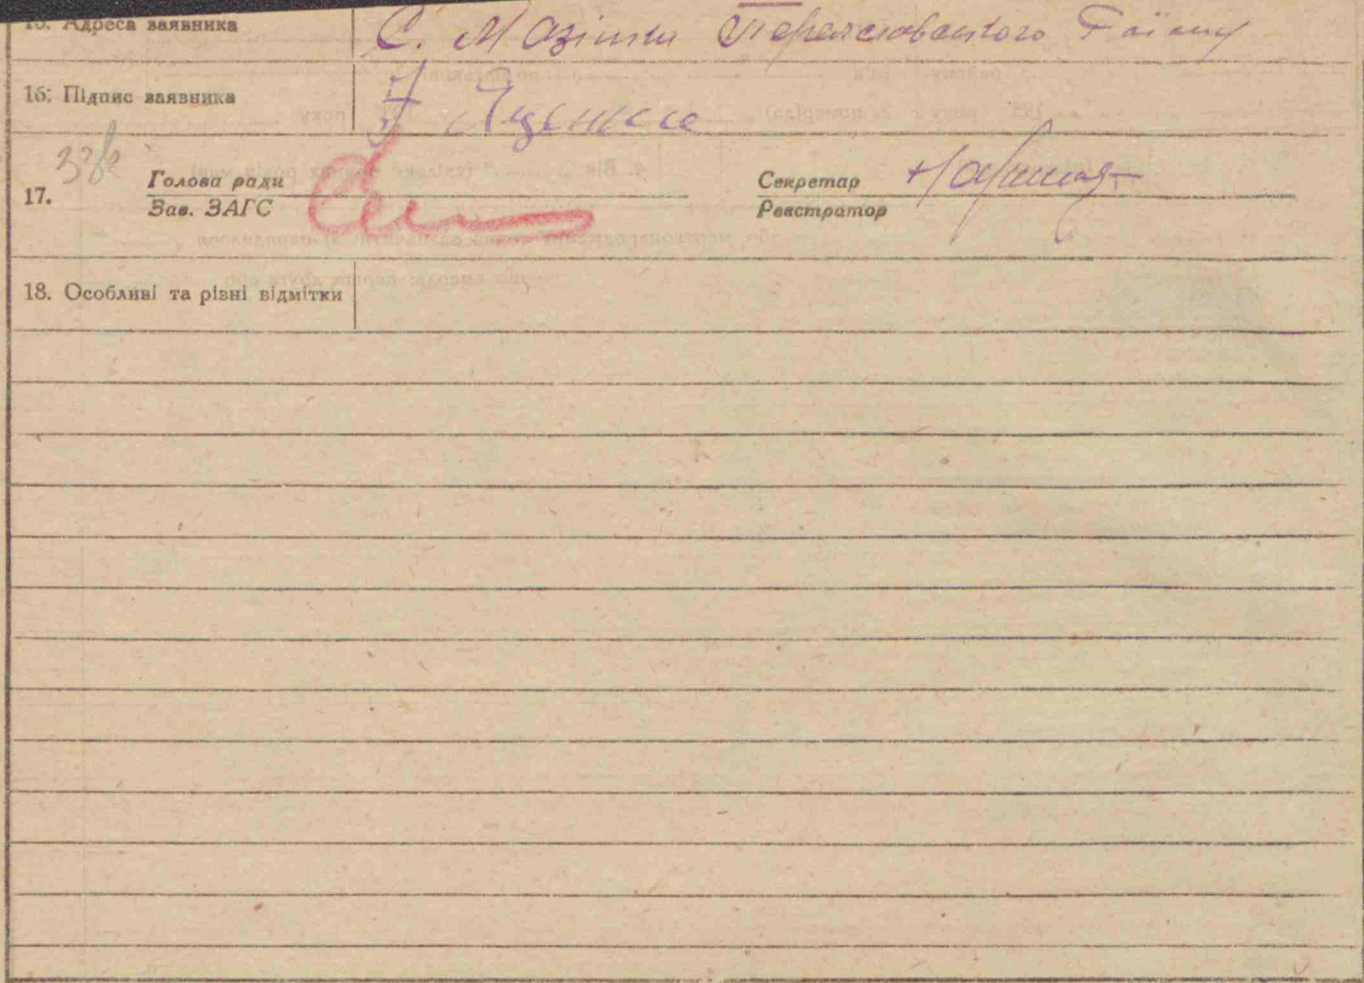 15. Адреса заявника С. Мазінки Переяславського Району
16. Підпис заявника Яценко
338
17. Голова ради Секретар
Зав. ЗАГС Реєстратор
18. Особливі та різні відмітки